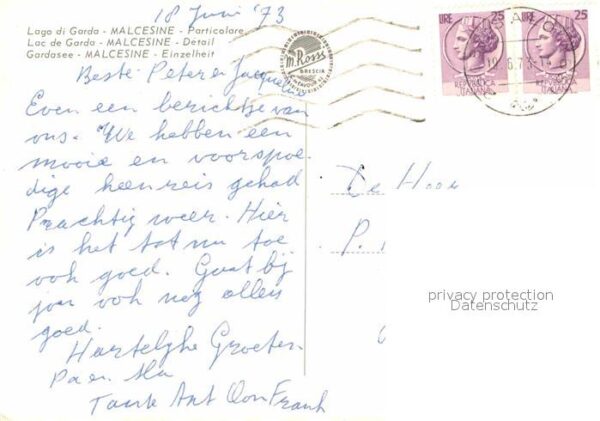 18 Juni '73
Lago di Garda - MALCESINE - Particolare
Lac de Garda - MALCESINE - Détail
Gardasee - MALCESINE - Einzelheit
Beste Peter en Jacqueline
Even een berichtje van
ons. We hebben een
mooie en voorspoe-
dige heenreis gehad
Prachtig weer. Hier
is het tot nu toe
ook goed. Gaat bij
jou ook nog alles
goed.
Hartelijke Groeten
Pa en Ma
Tante Ant Oom Frank
M. Rossi
BRESCIA
LIRE 25
LIRE 25
De Hoo
P.
privacy protection
Datenschutz